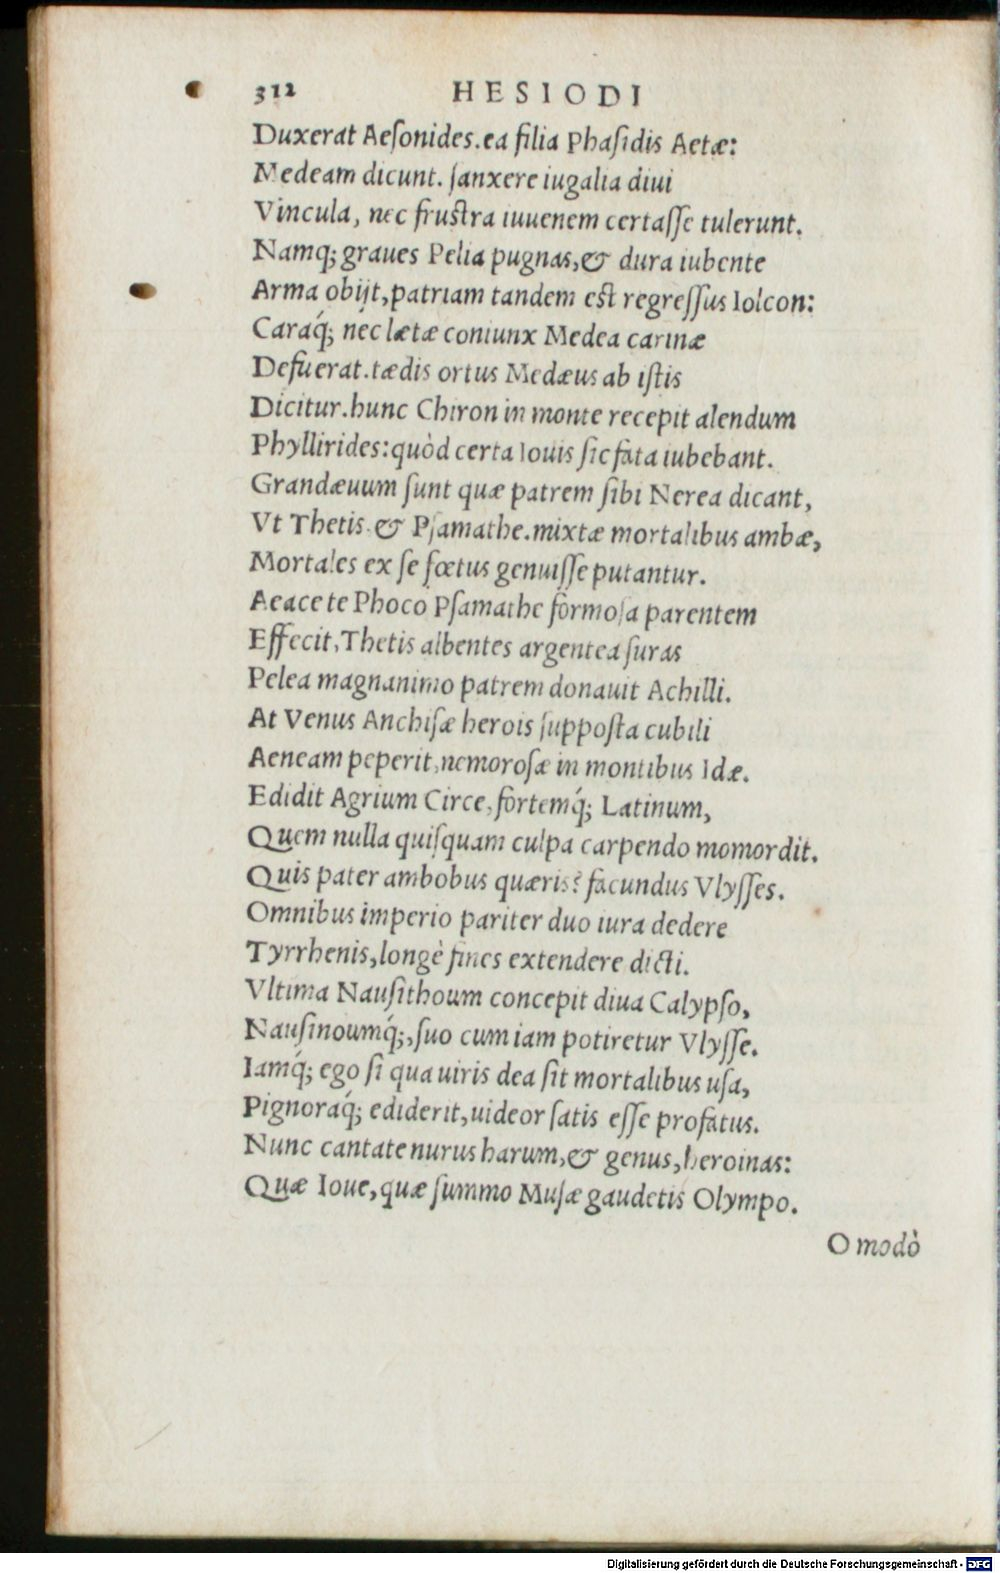 312 HESIODI
Duxerat Aeſonides.ea filia Phaſidis Aetæ:
Medeam dicunt. ſanxere iugalia diui
Vincula, nec fruſtra iuuenem certaſſe tulerunt.
Namq; graues Pelia pugnas,& dura iubente
Arma obijt,patriam tandem eſt regreſſus Iolcon:
Caraq́; nec lætæ coniunx Medea carinæ
Defuerat.tædis ortus Medæus ab iſtis
Dicitur.hunc Chiron in monte recepit alendum
Phyllirides:quòd certa Iouis ſic fata iubebant.
Grandæuum ſunt quæ patrem ſibi Nerea dicant,
Vt Thetis & Pſamathe.mixtæ mortalibus ambæ,
Mortales ex ſe fœtus genuiſſe putantur.
Aeace te Phoco Pſamathe formoſa parentem
Effecit,Thetis albentes argentea ſuras
Pelea magnanimo patrem donauit Achilli.
At Venus Anchiſæ herois ſuppoſta cubili
Aeneam peperit,nemoroſæ in montibus Idæ.
Edidit Agrium Circe,fortemq́; Latinum,
Quem nulla quiſquam culpa carpendo momordit.
Quis pater ambobus quæris? facundus Vlyſſes.
Omnibus imperio pariter duo iura dedere
Tyrrhenis,longè fines extendere dicti.
Vltima Nauſithoum concepit diua Calypſo,
Nauſinoumq́;,ſuo cum iam potiretur Vlyſſe.
Iamq́; ego ſi qua uiris dea ſit mortalibus uſa,
Pignoraq́; ediderit,uideor ſatis eſſe profatus.
Nunc cantate nurus harum,& genus,heroinas:
Quæ Ioue,quæ ſummo Muſæ gaudetis Olympo.
O modò
Digitalisierung gefördert durch die Deutsche Forschungsgemeinschaft - DFG